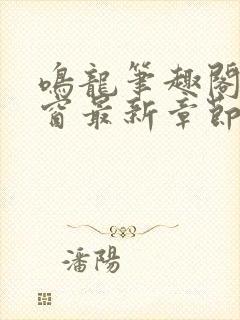 鳴龍筆趣閣
窗最新章節
潘陽